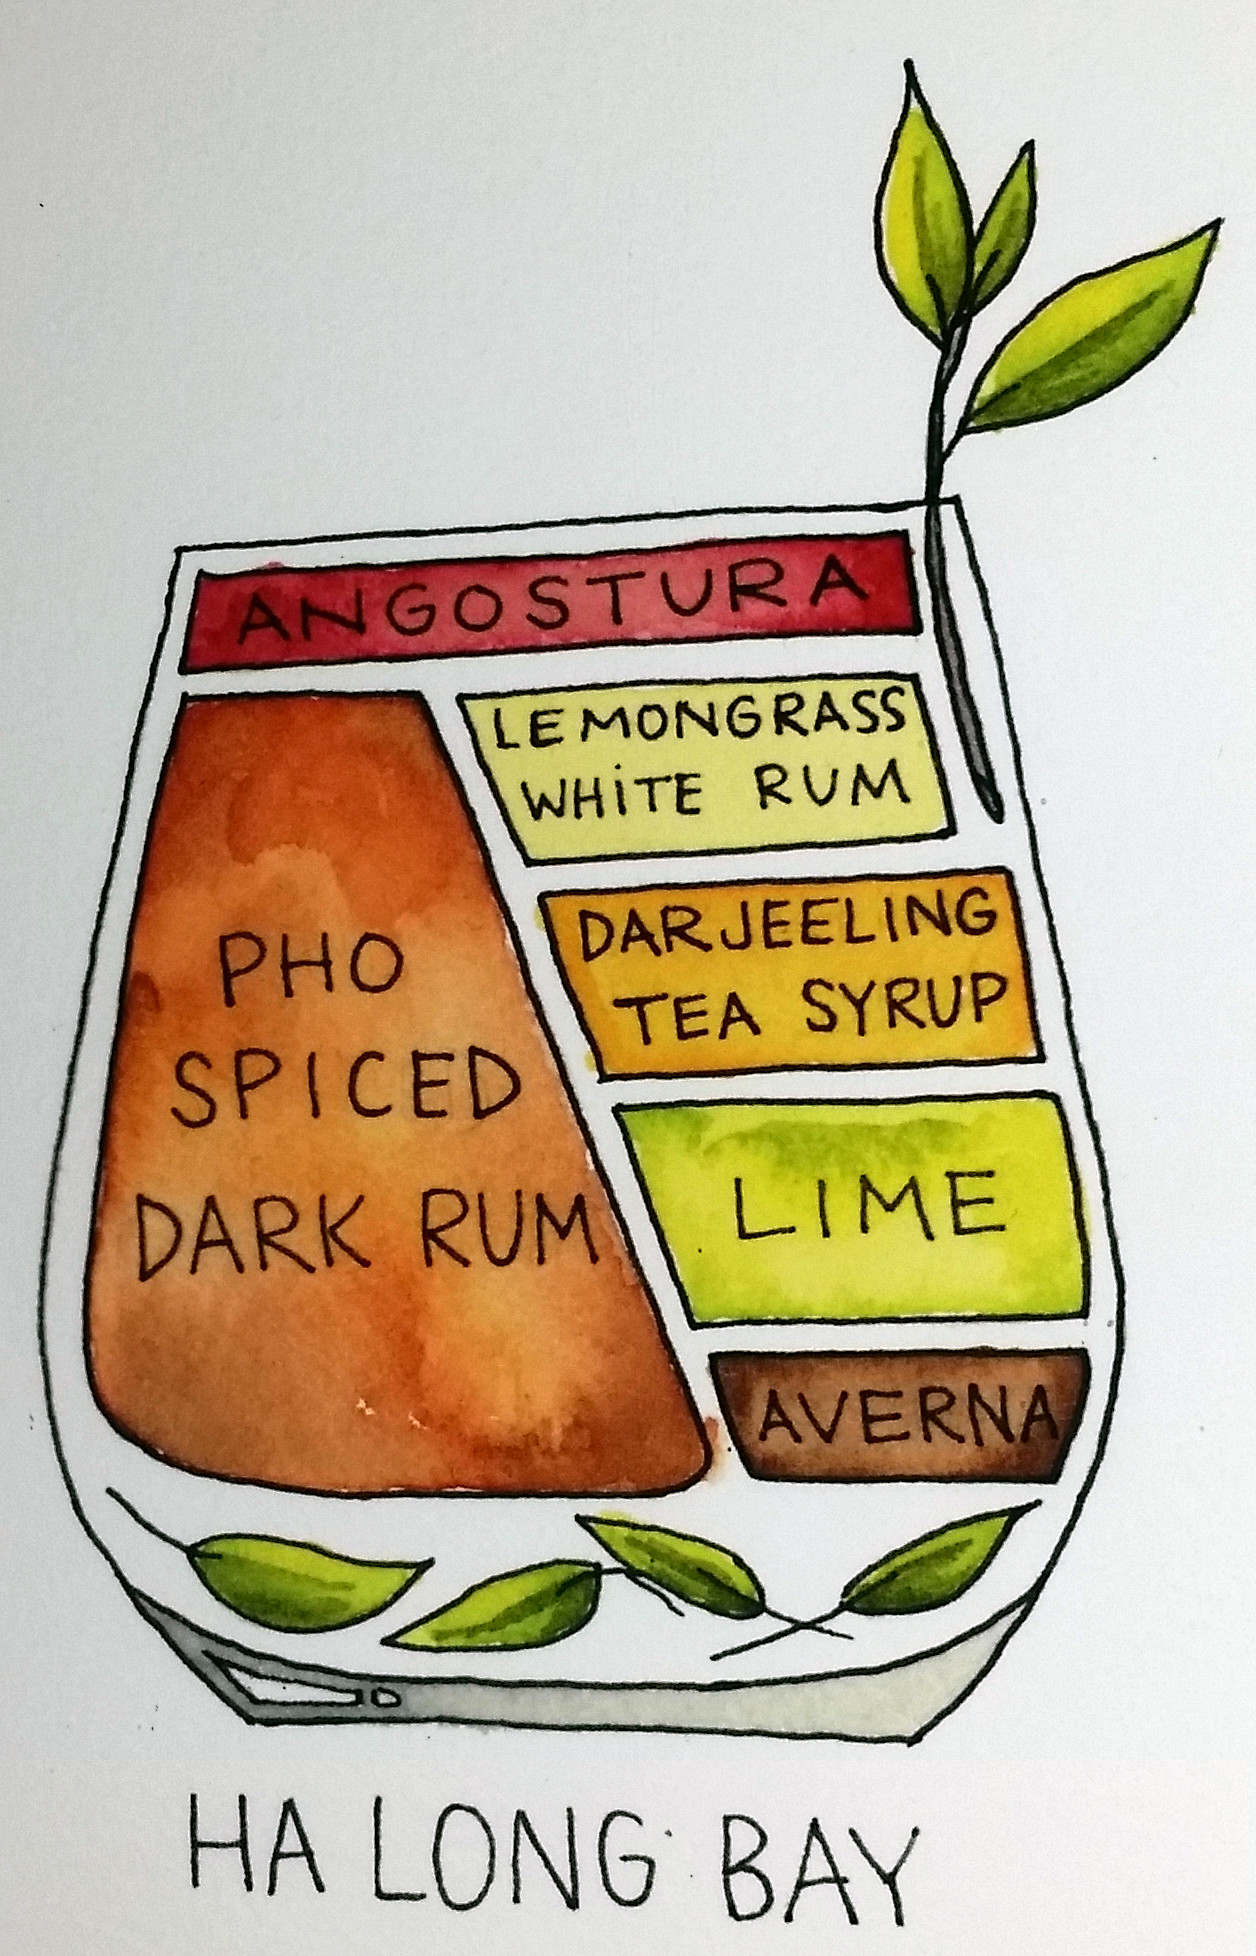 ANGOSTURA
LEMONGRASS
WHITE RUM
PHO
SPICED
DARK RUM
DARJEELING
TEA SYRUP
LIME
AVERNA
HA LONG BAY